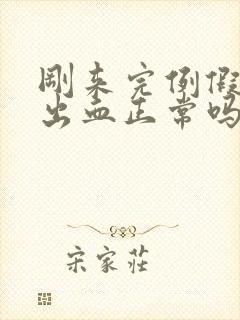 刚来完例假
出血正常吗
宋家莊